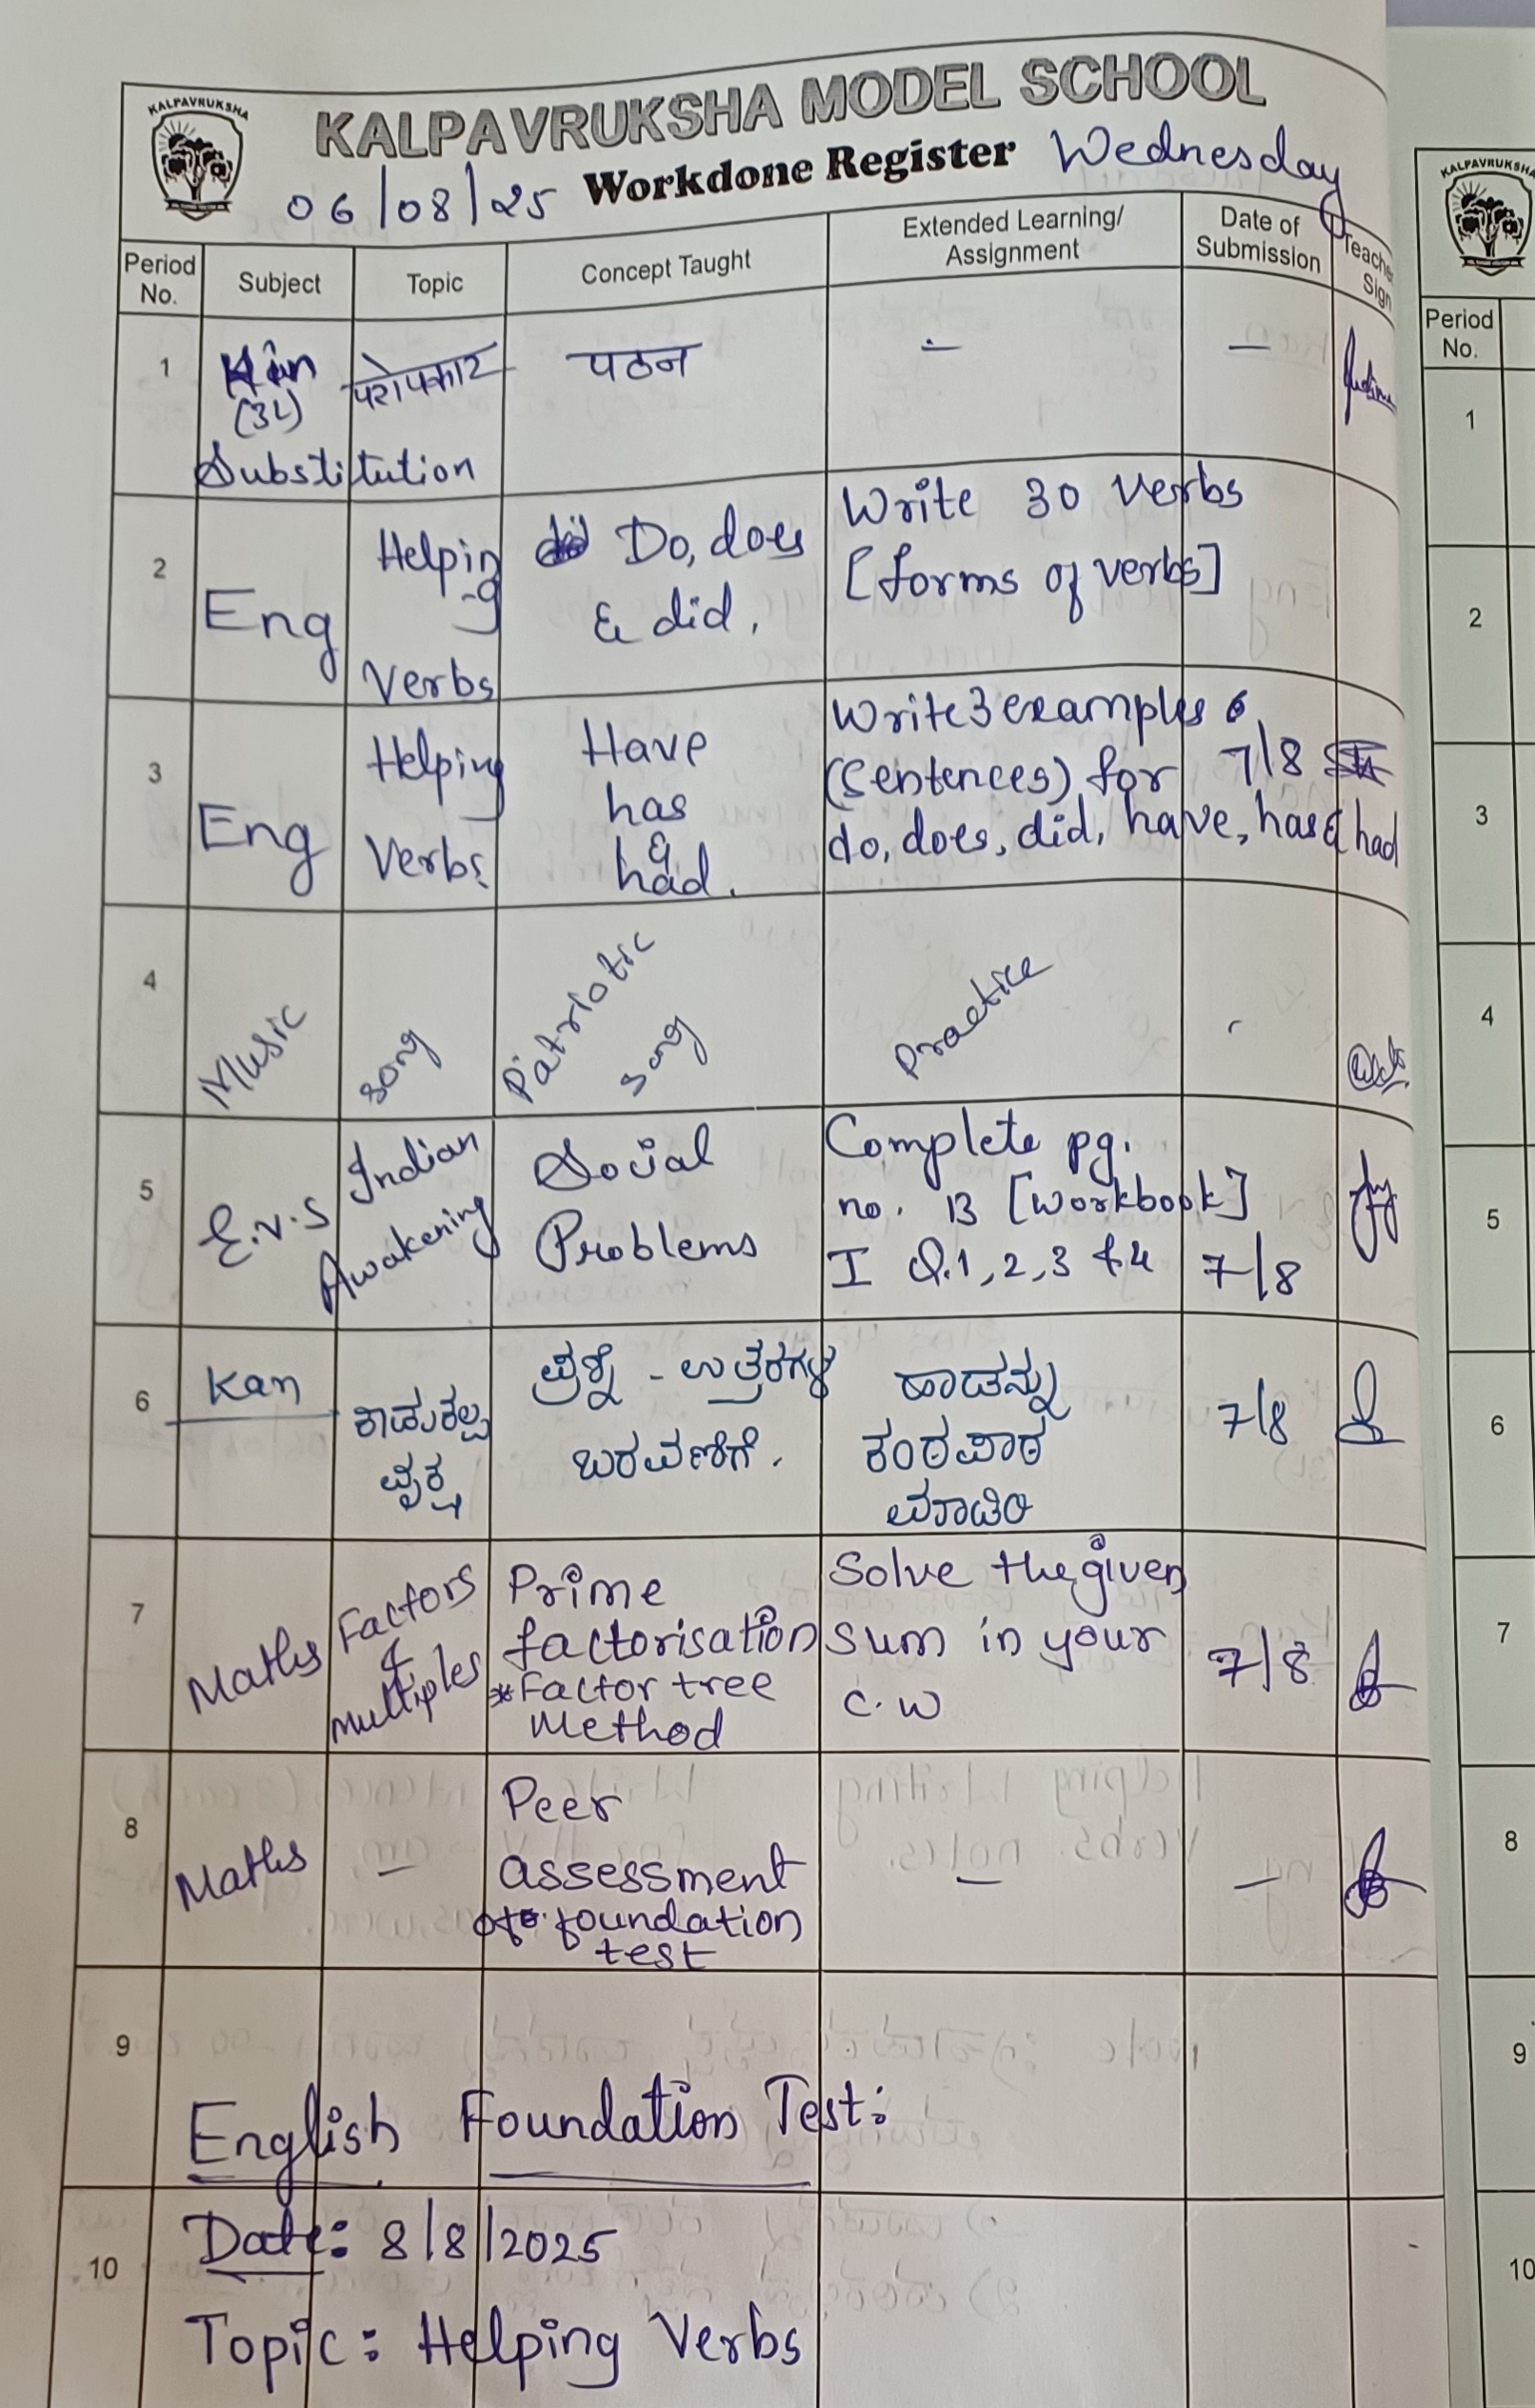 KALPAVRUKSHA
KALPAVRUKSHA MODEL SCHOOL
06/08/25 Workdone Register Wednesday
Period No.
Subject
Topic
Concept Taught
Extended Learning/
Assignment
Date of
Submission
Teacher
Sign
1
Hin
(3L)
Substitution
परोपकार
पठन
-
-
2
Eng
Helping
Verbs
Do, does
& did.
Write 30 verbs
[forms of verbs]
3
Eng
Helping
Verbs
Have
has
&
had.
Write 3 examples
(Sentences) for 7/8
do, does, did, have, has & had
4
Music
Song
Patriotic
song
Practice
-
5
E.v.s
Indian
Awakening
Social
Problems
Complete pg.
no. 13 [workbook]
I Q.1, 2, 3 & 4
7/8
6
Kan
ಕಾಡುಕಲ್ಪ
ವೃಕ್ಷ
ಪ್ರಶ್ನೆ - ಉತ್ತರಗಳ
ಬರವಣಿಗೆ.
ಹಾಡನ್ನು
ಕಂಠಪಾಠ
ಮಾಡಿರಿ
7/8
7
Maths
Factors
&
multiples
Prime
factorisation
*Factor tree
Method
Solve the given
sum in your
C.W
7/8
8
Maths
-
Peer
assessment
of foundation
test
-
-
9
English Foundation Test:
10
Date: 8/8/2025
Topic: Helping Verbs
KALPAVRUKSHA
Period
No.
1
2
3
4
5
6
7
8
9
10